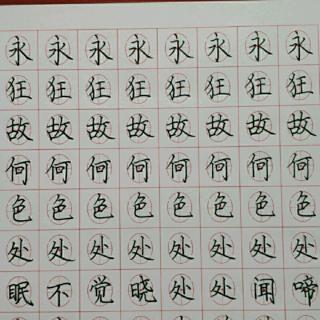 永永永永永永永永
狂狂狂狂狂狂狂狂
故故故故故故故故
何何何何何何何何
色色色色色色色色
处处处处处处处处
眠不觉晓处处闻啼